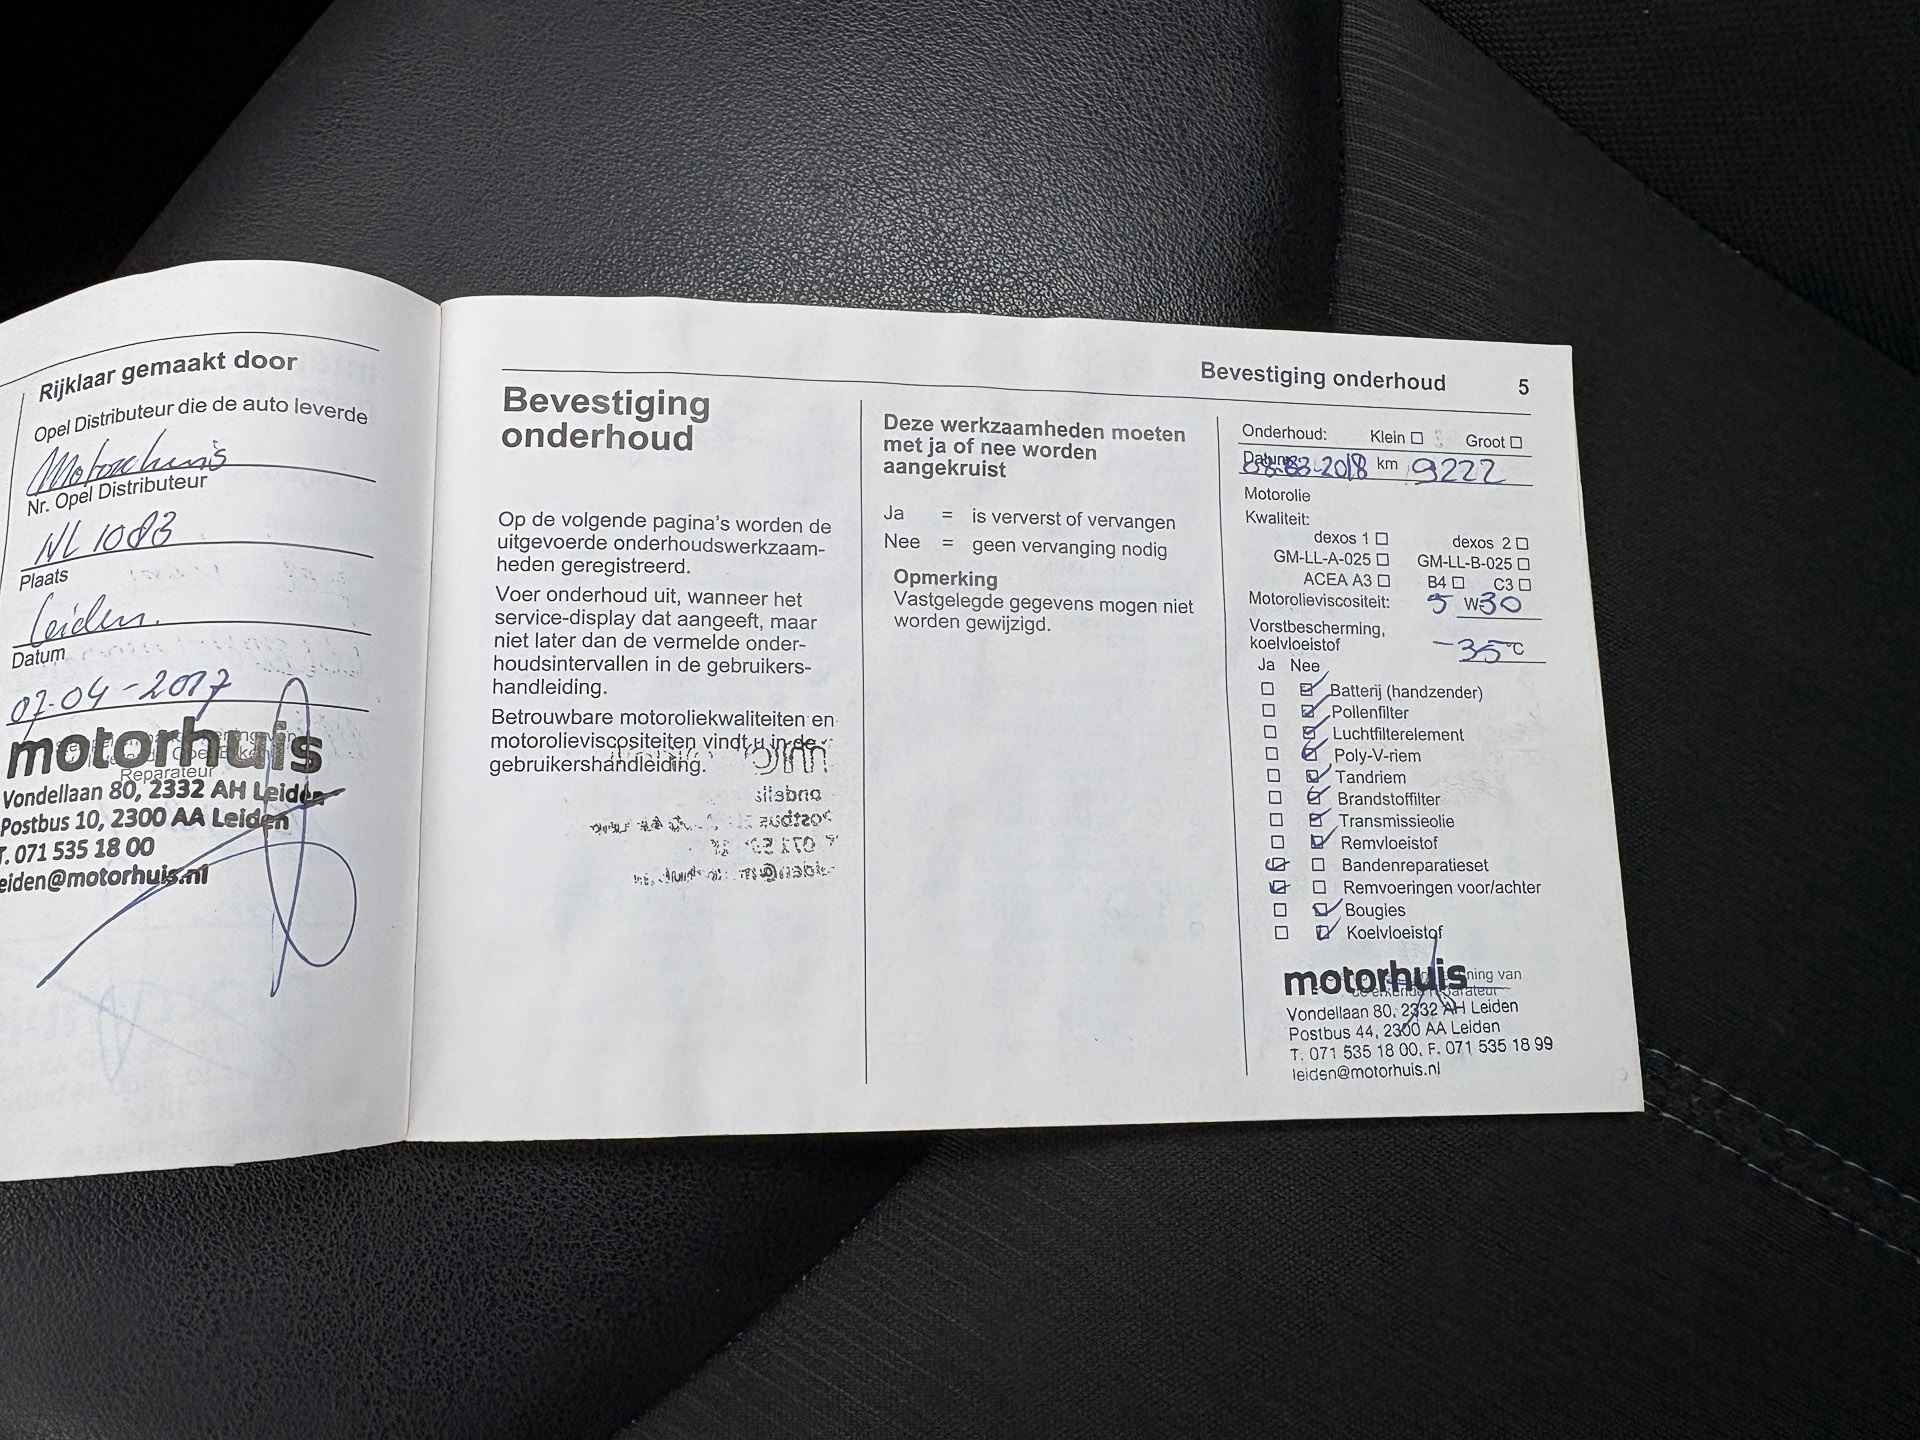 Rijklaar gemaakt door
Opel Distributeur die de auto leverde
Motorhuis
Nr. Opel Distributeur
NL 1083
Plaats
Leiden.
Datum
07-04-2017
Reparateur
motorhuis
Vondellaan 80, 2332 AH Leiden
Postbus 10, 2300 AA Leiden
T. 071 535 18 00
eiden@motorhuis.nl
Bevestiging onderhoud 5
Bevestiging
onderhoud
Op de volgende pagina's worden de
uitgevoerde onderhoudswerkzaam-
heden geregistreerd.
Voer onderhoud uit, wanneer het
service-display dat aangeeft, maar
niet later dan de vermelde onder-
houdsintervallen in de gebruikers-
handleiding.
Betrouwbare motoroliekwaliteiten en
motorolieviscositeiten vindt u in de
gebruikershandleiding.
Deze werkzaamheden moeten
met ja of nee worden
aangekruist
Ja = is ververst of vervangen
Nee = geen vervanging nodig
Opmerking
Vastgelegde gegevens mogen niet
worden gewijzigd.
Onderhoud: Klein Groot
Datum: 08-03-2018 km 9222
Motorolie
Kwaliteit:
dexos 1 dexos 2
GM-LL-A-025 GM-LL-B-025
ACEA A3 B4 C3
Motorolieviscositeit: 5 W 30
Vorstbescherming,
koelvloeistof -35 °C
Ja Nee
Batterij (handzender)
Pollenfilter
Luchtfilterelement
Poly-V-riem
Tandriem
Brandstoffilter
Transmissieolie
Remvloeistof
Bandenreparatieset
Remvoeringen voor/achter
Bougies
Koelvloeistof
motorhuis
Vondellaan 80, 2332 AH Leiden
Postbus 44, 2300 AA Leiden
T. 071 535 18 00. F. 071 535 18 99
leiden@motorhuis.nl